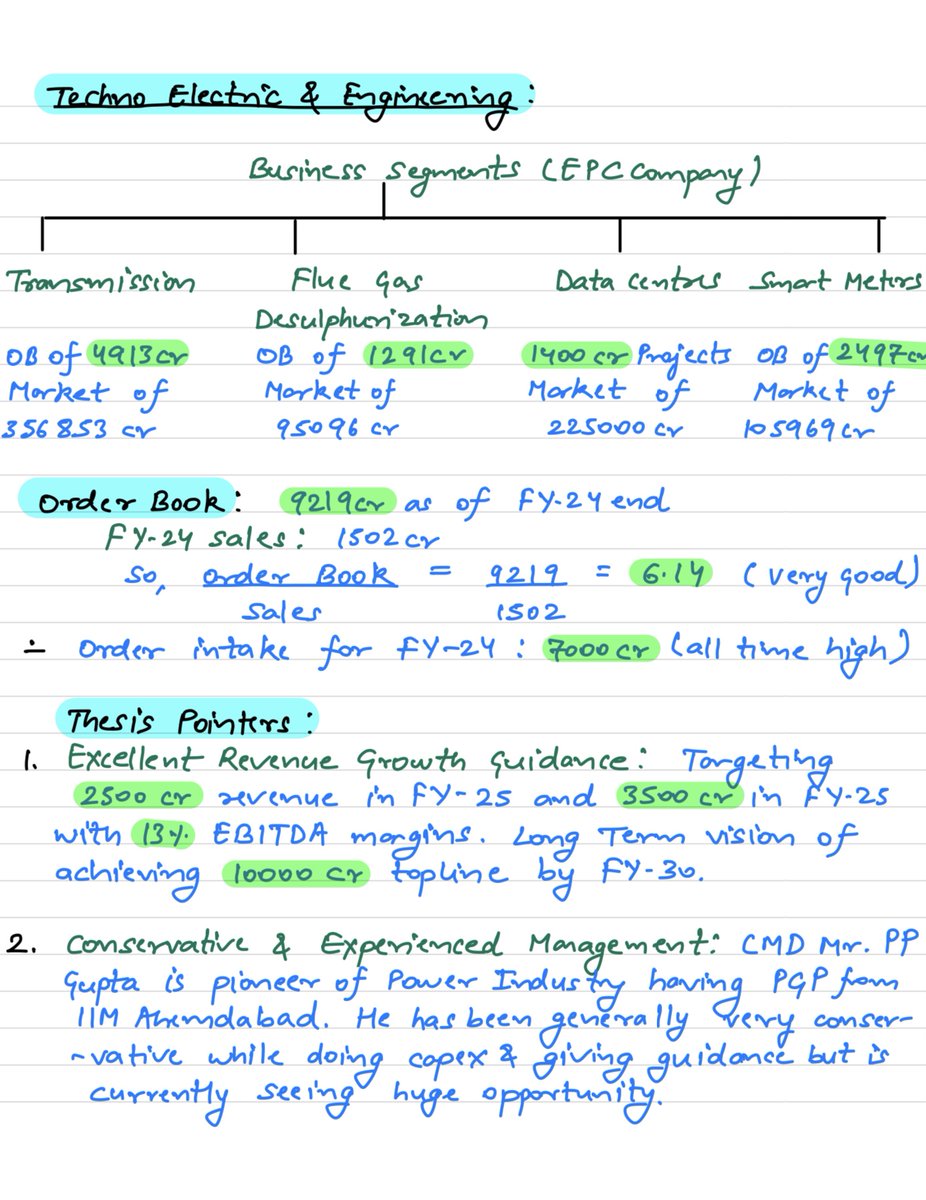 Techno Electric & Engineering:
Business Segments (EPC Company)
Transmission Flue Gas Data Centres Smart Meters
Desulphurization
OB of 4913cr OB of 1291cr 1400 cr Projects OB of 2497cr
Market of Market of Market of Market of
356853 cr 95096 cr 225000 cr 105969cr
Order Book: 9219cr as of FY-24 end
FY-24 sales: 1502cr
So, Order Book = 9219 = 6.14 (very good)
Sales 1502
∴ Order intake for FY-24: 7000cr (all time high)
Thesis Pointers:
1. Excellent Revenue Growth Guidance: Targeting
2500 cr revenue in FY-25 and 3500 cr in FY-25
with 13% EBITDA margins. Long Term vision of
achieving 10000 Cr topline by FY-30.
2. Conservative & Experienced Management: CMD Mr. PP
Gupta is pioneer of Power Industry having PGP from
IIM Ahemdabad. He has been generally very conser-
-vative while doing capex & giving guidance but is
currently seeing huge opportunity.